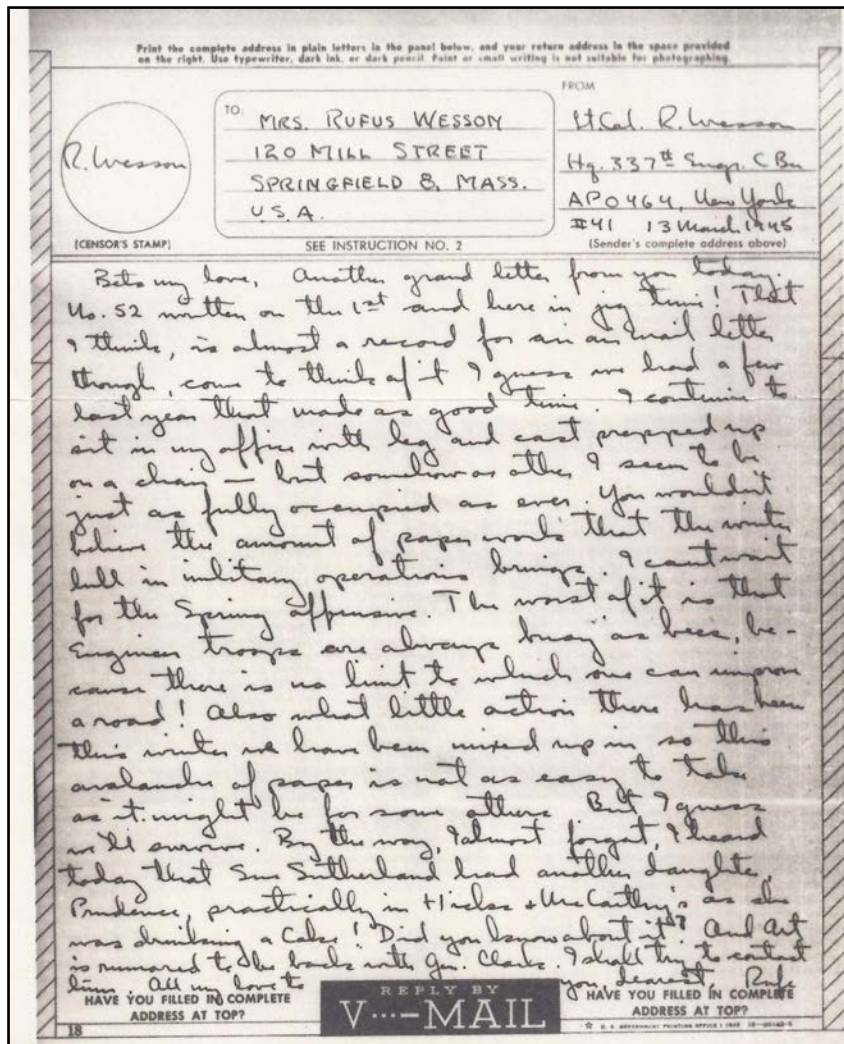 Print the complete address in plain letters in the panel below, and your return address in the space provided
on the right. Use typewriter, dark ink, or dark pencil. Faint or small writing is not suitable for photographing.
R. Wesson
(CENSOR'S STAMP)
TO:
MRS. RUFUS WESSON
120 MILL STREET
SPRINGFIELD 8, MASS.
U.S.A.
SEE INSTRUCTION NO. 2
FROM
Lt Col. R. Wesson
Hq. 337th Engr. C Bn
APO 464, New York
#41 13 March 1945
(Sender's complete address above)
Bets my love, Another grand letter from you today.
No. 52 written on the 1st and here in jig time! That
I think, is almost a record for an air mail letter
though, come to think of it I guess we had a few
last year that made as good time. I continue to
sit in my office with leg and cast propped up
on a chair — but somehow or other I seem to be
just as fully occupied as ever. You wouldn't
believe the amount of paper work that the winter
lull in military operations brings. I can't wait
for the Spring offensive. The worst of it is that
Engineer troops are always busy as bees, be-
cause there is no limit to which one can improve
a road! Also what little action there has been
this winter we have been mixed up in so this
avalanche of paper is not as easy to take
as it might be for some others. But I guess
we'll survive. By the way, I almost forgot, I heard
today that Sue Sutherland had another daughter,
Prudence, practically in Hicks + McCarthy's as she
was drinking a Coke! Did you know about it? And Art
is rumored to be back with Gen. Clark. I shall try to contact
him. All my love to you, dearest, Rufe
HAVE YOU FILLED IN COMPLETE
ADDRESS AT TOP?
REPLY BY
V···—MAIL
HAVE YOU FILLED IN COMPLETE
ADDRESS AT TOP?
18
☆ U. S. GOVERNMENT PRINTING OFFICE